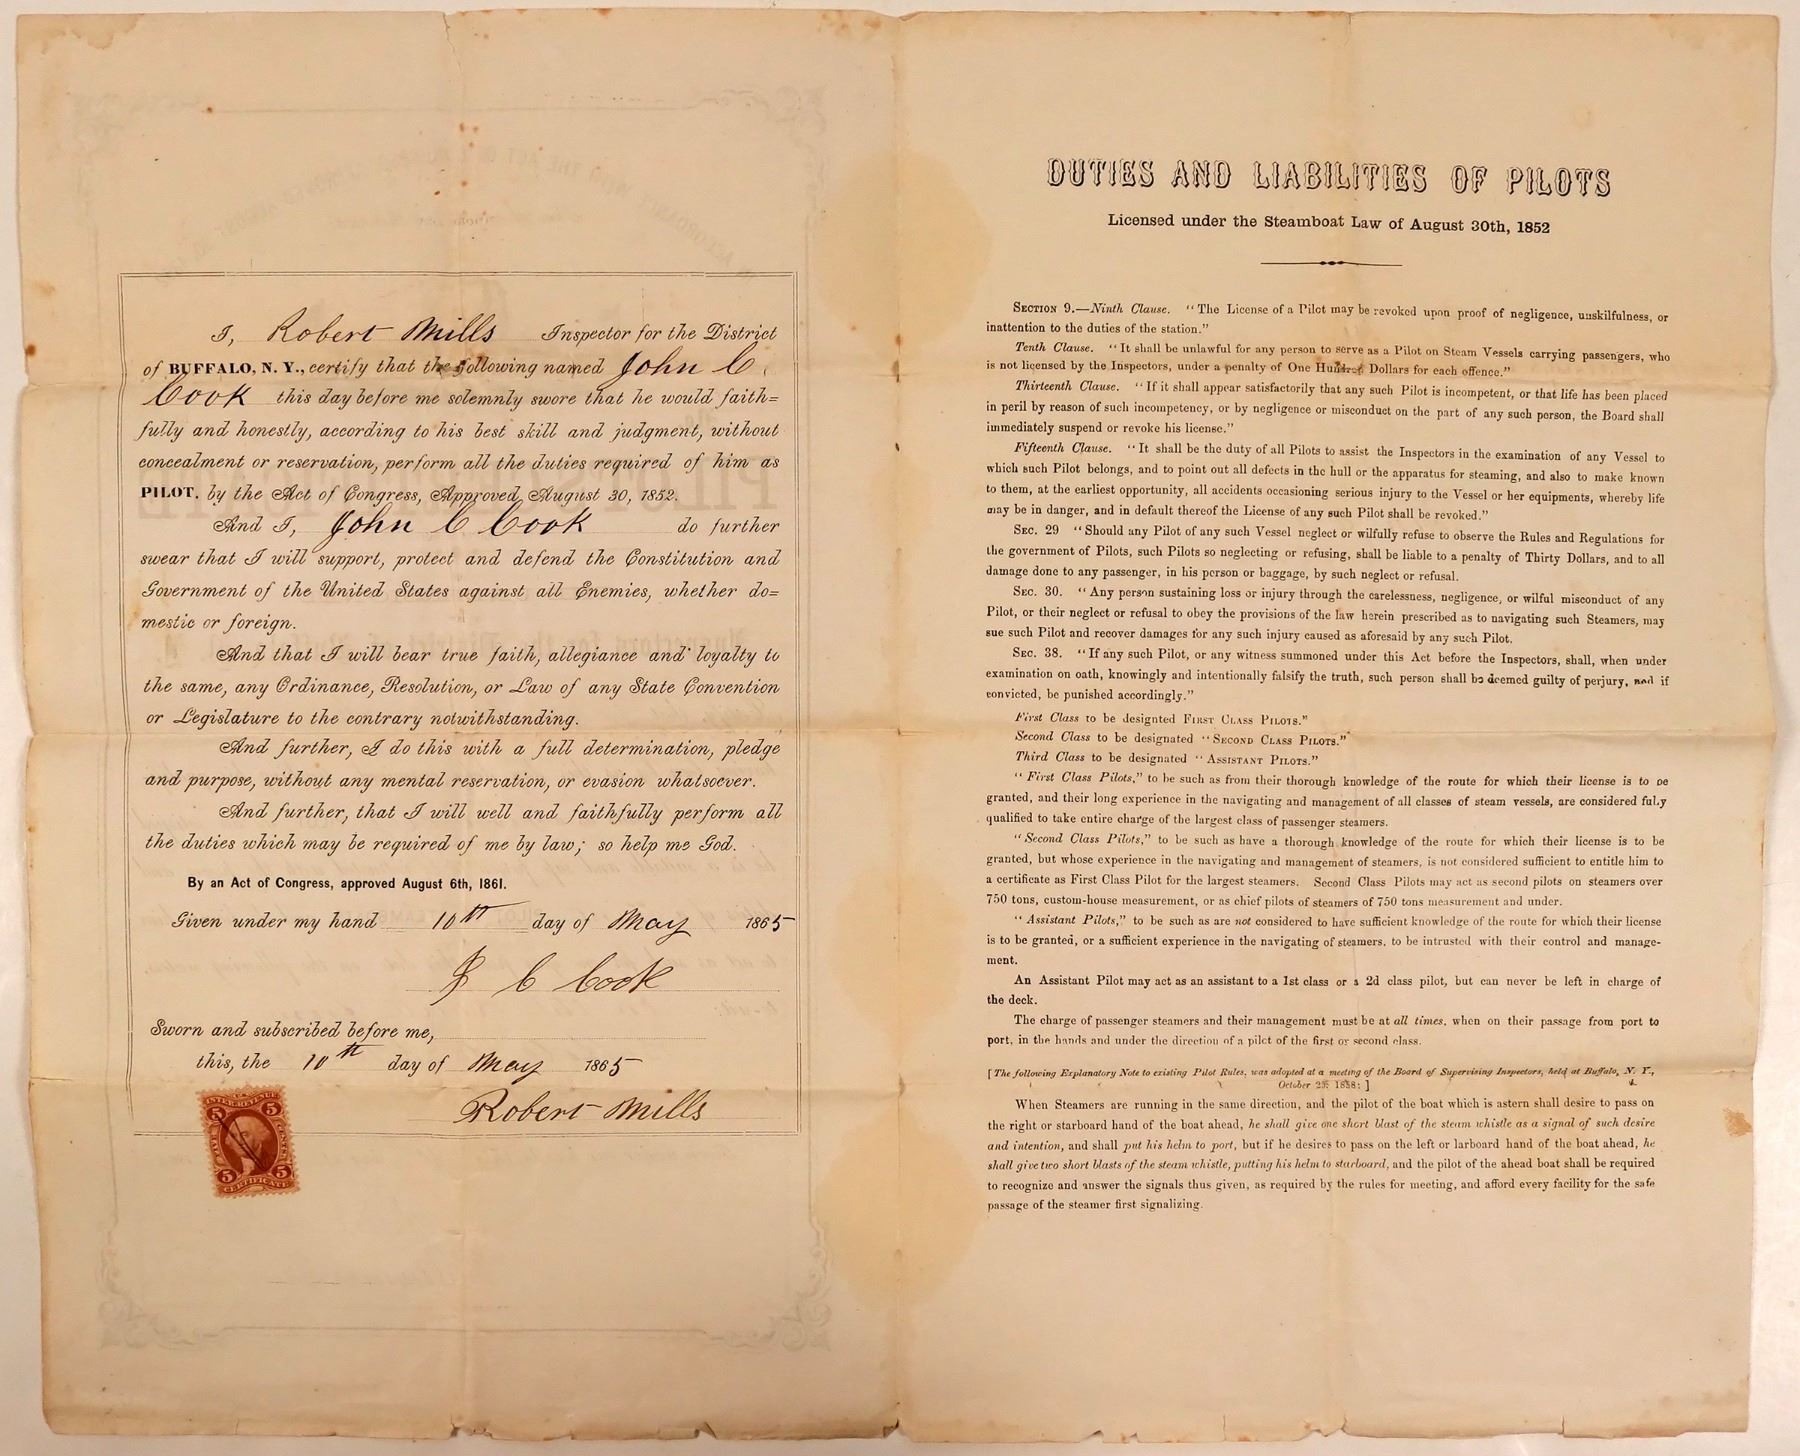 I, Robert Mills Inspector for the District
of BUFFALO, N. Y., certify that the following named John C.
Cook this day before me solemnly swore that he would faith=
fully and honestly, according to his best skill and judgment, without
concealment or reservation, perform all the duties required of him as
PILOT. by the Act of Congress, Approved, August 30, 1852.
And I, John C Cook do further
swear that I will support, protect and defend the Constitution and
Government of the United States against all Enemies, whether do=
mestic or foreign.
And that I will bear true faith, allegiance and loyalty to
the same, any Ordinance, Resolution, or Law of any State Convention
or Legislature to the contrary notwithstanding.
And further, I do this with a full determination, pledge
and purpose, without any mental reservation, or evasion whatsoever.
And further, that I will well and faithfully perform all
the duties which may be required of me by law; so help me God.
By an Act of Congress, approved August 6th, 1861.
Given under my hand 10th day of May 1865
J C Cook
Sworn and subscribed before me,
this, the 10th day of May 1865
Robert Mills
INTER. REVENUE
5 5
FIVE CENTS
5 5
CERTIFICATE
DUTIES AND LIABILITIES OF PILOTS
Licensed under the Steamboat Law of August 30th, 1852
SECTION 9.—Ninth Clause. "The License of a Pilot may be revoked upon proof of negligence, unskilfulness, or
inattention to the duties of the station."
Tenth Clause. "It shall be unlawful for any person to serve as a Pilot on Steam Vessels carrying passengers, who
is not licensed by the Inspectors, under a penalty of One Hundred Dollars for each offence."
Thirteenth Clause. "If it shall appear satisfactorily that any such Pilot is incompetent, or that life has been placed
in peril by reason of such incompetency, or by negligence or misconduct on the part of any such person, the Board shall
immediately suspend or revoke his license."
Fifteenth Clause. "It shall be the duty of all Pilots to assist the Inspectors in the examination of any Vessel to
which such Pilot belongs, and to point out all defects in the hull or the apparatus for steaming, and also to make known
to them, at the earliest opportunity, all accidents occasioning serious injury to the Vessel or her equipments, whereby life
may be in danger, and in default thereof the License of any such Pilot shall be revoked."
SEC. 29 "Should any Pilot of any such Vessel neglect or wilfully refuse to observe the Rules and Regulations for
the government of Pilots, such Pilots so neglecting or refusing, shall be liable to a penalty of Thirty Dollars, and to all
damage done to any passenger, in his person or baggage, by such neglect or refusal.
SEC. 30. "Any person sustaining loss or injury through the carelessness, negligence, or wilful misconduct of any
Pilot, or their neglect or refusal to obey the provisions of the law herein prescribed as to navigating such Steamers, may
sue such Pilot and recover damages for any such injury caused as aforesaid by any such Pilot.
SEC. 38. "If any such Pilot, or any witness summoned under this Act before the Inspectors, shall, when under
examination on oath, knowingly and intentionally falsify the truth, such person shall be deemed guilty of perjury, and if
convicted, be punished accordingly."
First Class to be designted FIRST CLASS PILOTS."
Second Class to be designated "SECOND CLASS PILOTS."
Third Class to be designated "ASSISTANT PILOTS."
"First Class Pilots," to be such as from their thorough knowledge of the route for which their license is to be
granted, and their long experience in the navigating and management of all classes of steam vessels, are considered fully
qualified to take entire charge of the largest class of passenger steamers.
"Second Class Pilots," to be such as have a thorough knowledge of the route for which their license is to be
granted, but whose experience in the navigating and management of steamers, is not considered sufficient to entitle him to
a certificate as First Class Pilot for the largest steamers. Second Class Pilots may act as second pilots on steamers over
750 tons, custom-house measurement, or as chief pilots of steamers of 750 tons measurement and under.
"Assistant Pilots," to be such as are not considered to have sufficient knowledge of the route for which their license
is to be granted, or a sufficient experience in the navigating of steamers, to be intrusted with their control and manage-
ment.
An Assistant Pilot may act as an assistant to a 1st class or a 2d class pilot, but can never be left in charge of
the deck.
The charge of passenger steamers and their management must be at all times, when on their passage from port to
port, in the hands and under the direction of a pilot of the first or second class.
[The following Explanatory Note to existing Pilot Rules, was adopted at a meeting of the Board of Supervising Inspectors, held at Buffalo, N. Y.,
October 1858:]
When Steamers are running in the same direction, and the pilot of the boat which is astern shall desire to pass on
the right or starboard hand of the boat ahead, he shall give one short blast of the steam whistle as a signal of such desire
and intention, and shall put his helm to port, but if he desires to pass on the left or larboard hand of the boat ahead, he
shall give two short blasts of the steam whistle, putting his helm to starboard, and the pilot of the ahead boat shall be required
to recognize and answer the signals thus given, as required by the rules for meeting, and afford every facility for the safe
passage of the steamer first signalizing.